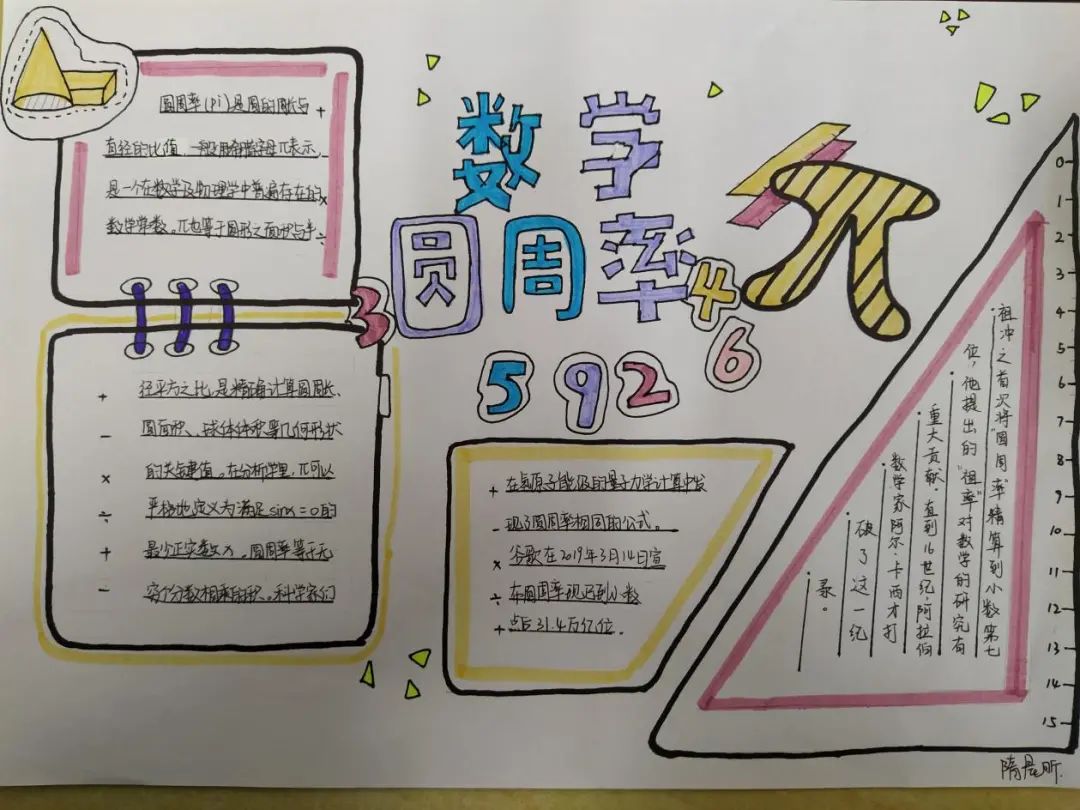 数学
圆周率
3
4
5 9 2
6
π
圆周率(Pi)是圆的周长与 +
直径的比值,一般用希腊字母π表示, -
是一个在数学及物理学中普遍存在的 ×
数学常数。π也等于圆形之面积与半 ÷
+ 径平方之比,是精确计算圆周长、
- 圆面积、球体体积等几何形状
× 的关键值。在分析学里,π可以
÷ 严格地定义为满足sinx=0的
+ 最小正实数x,圆周率等于无
- 穷个分数相乘的积。科学家们
+ 在氢原子能级的量子力学计算中发
- 现了圆周率相同的公式。
× 谷歌在2019年3月14日宣
÷ 布圆周率现已到小数
+ 点后31.4万亿位。
祖冲之首次将"圆周率"精算到小数第七
位,他提出的"祖率"对数学的研究有
重大贡献。直到16世纪,阿拉伯
数学家阿尔·卡西才打
破了这一纪
录。
0
1
2
3
4
5
6
7
8
9
10
11
12
13
14
15